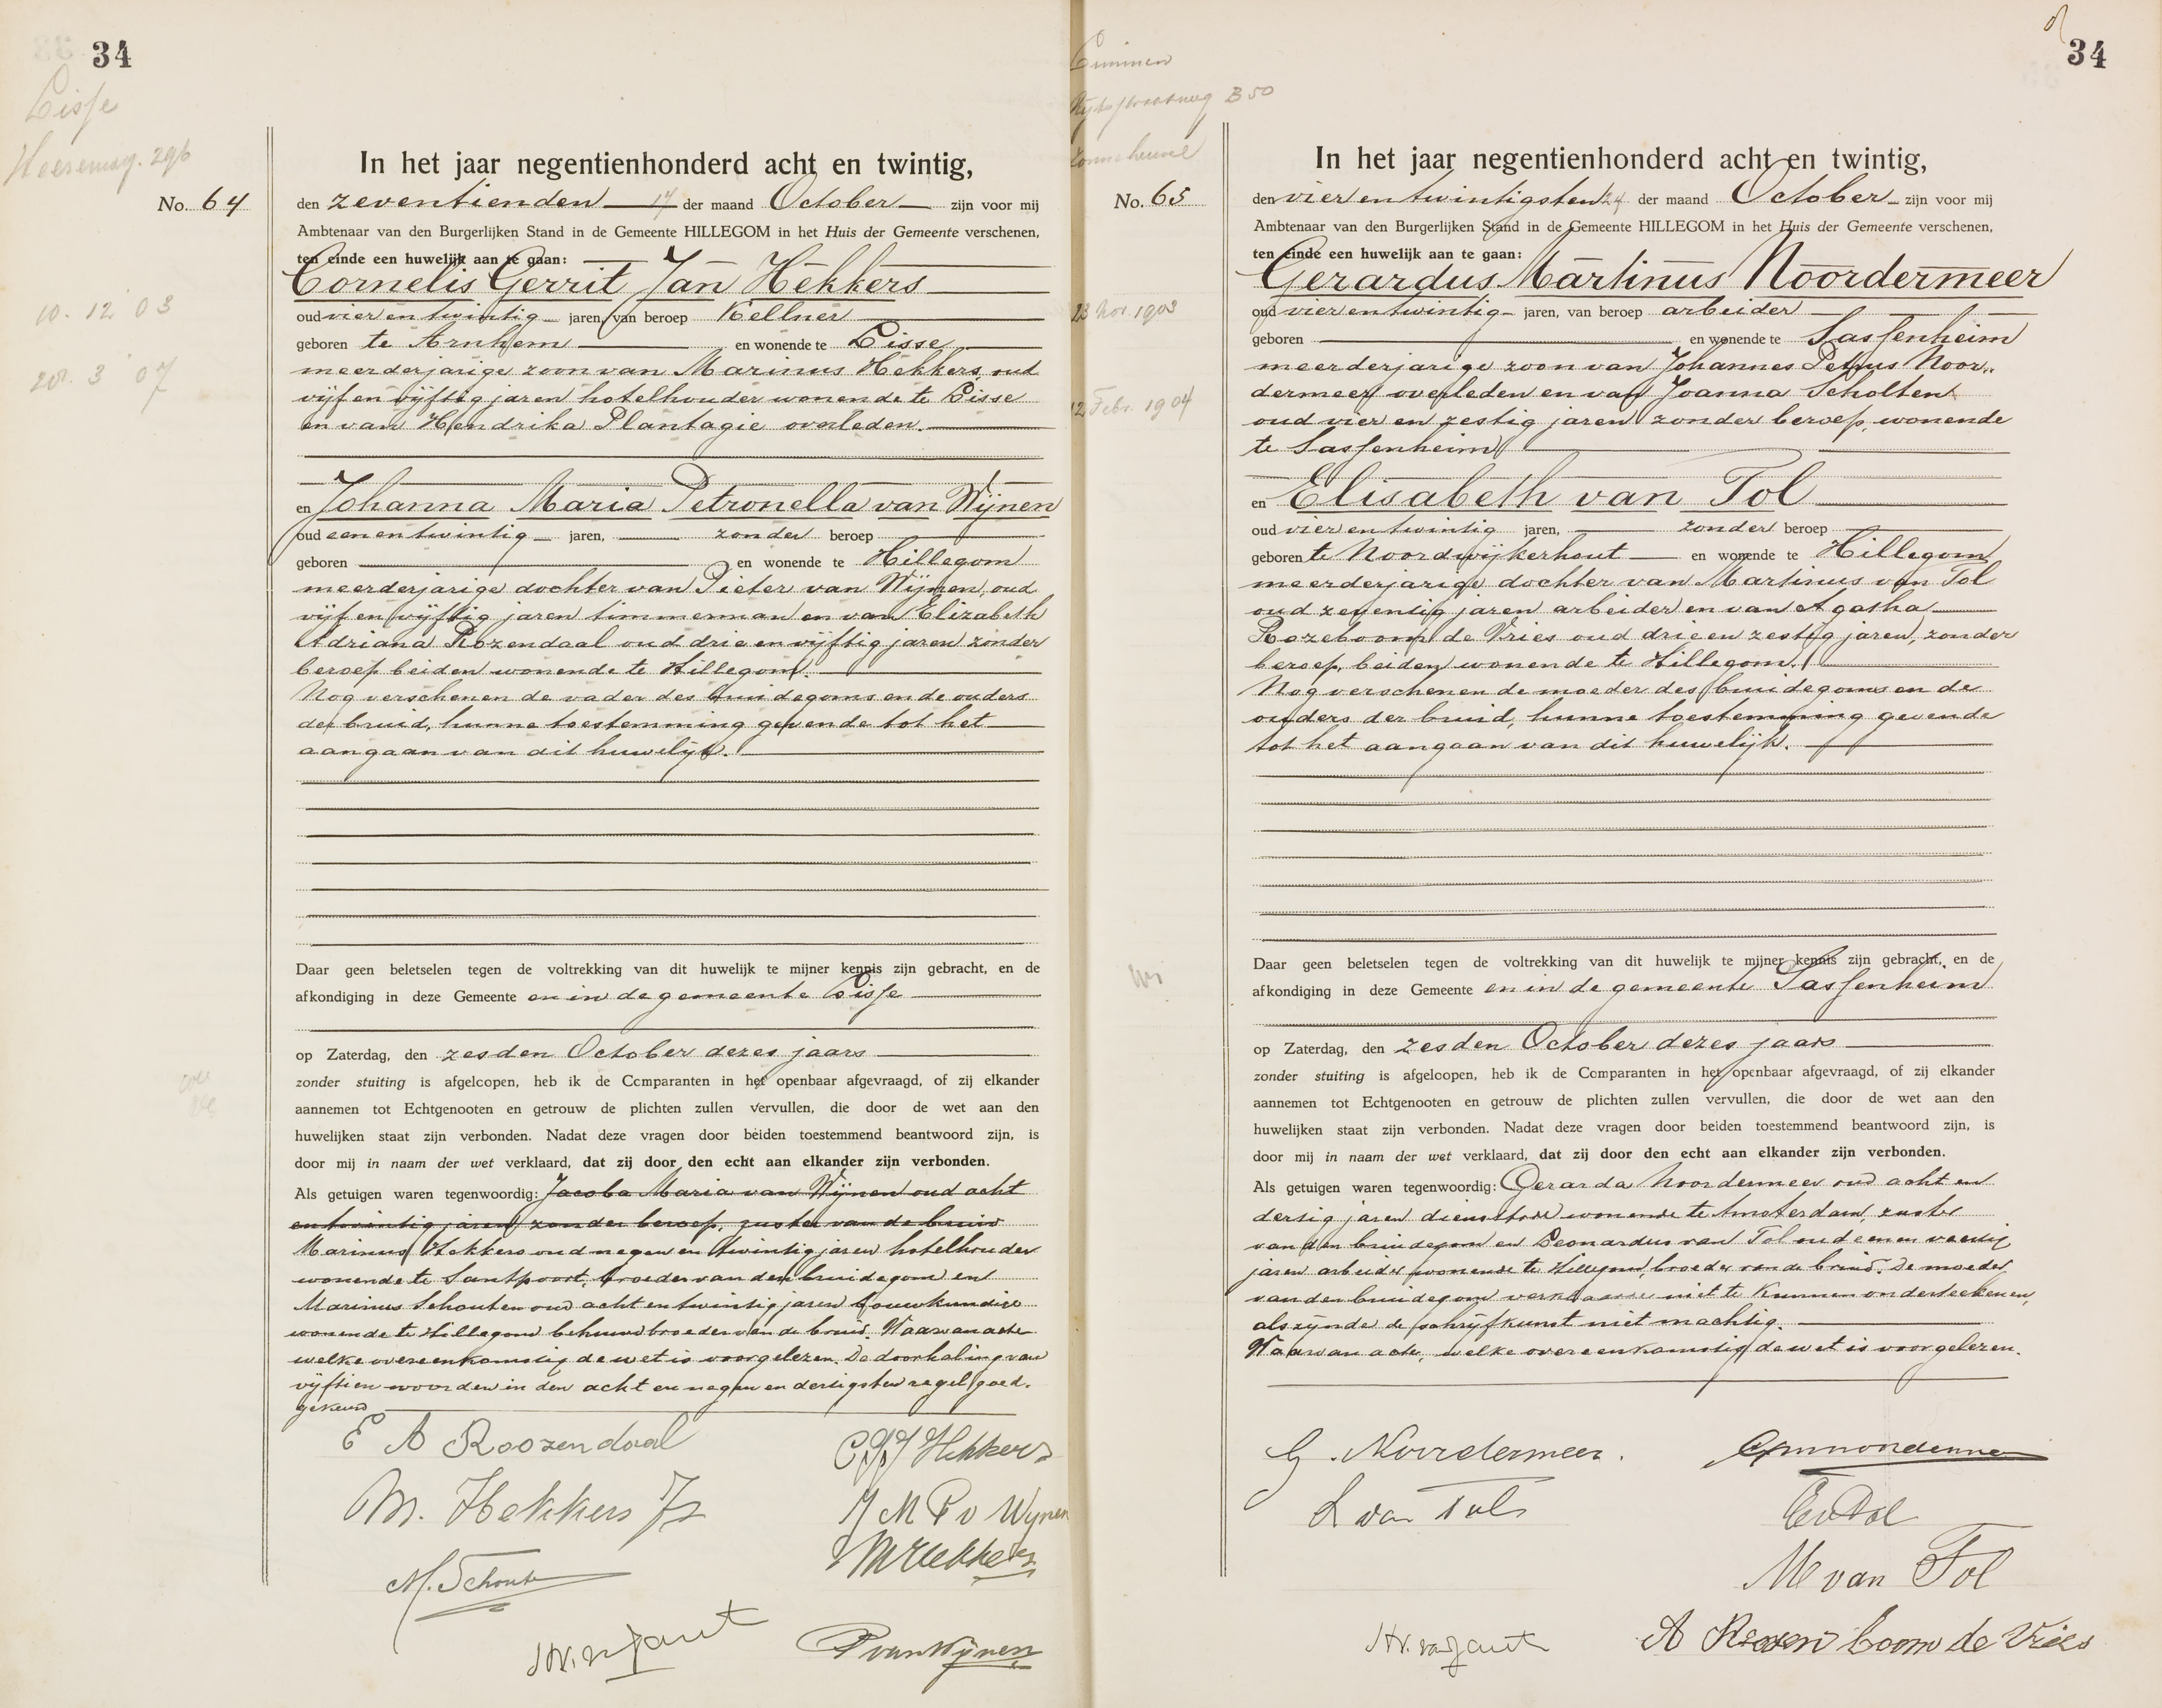 34
Lisse
Heereweg. 296
No. 64
10. 12 03
20. 3 07
In het jaar negentienhonderd acht en twintig,
den zeventienden 17 der maand October zijn voor mij
Ambtenaar van den Burgerlijken Stand in de Gemeente HILLEGOM in het Huis der Gemeente verschenen,
ten einde een huwelijk aan te gaan:
Cornelis Gerrit Jan Hekkers
oud vier en twintig jaren, van beroep Kellner
geboren te Arnhem en wonende te Lisse
meerderjarige zoon van Marinus Hekkers, oud
vijf en vijftig jaren hotelhouder wonende te Lisse
en van Hendrika Plantagie overleden.
en Johanna Maria Petronella van Wijnen
oud een en twintig jaren, zonder beroep
geboren en wonende te Hillegom
meerderjarige dochter van Pieter van Wijnen, oud
vijf en vijftig jaren timmerman en van Elizabeth
Adriana Rozendaal oud drie en vijftig jaren zonder
beroep beiden wonende te Hillegom.
Nog verschenen de vader des bruidegoms en de ouders
der bruid, hunne toestemming gevende tot het
aangaan van dit huwelijk.
Daar geen beletselen tegen de voltrekking van dit huwelijk te mijner kennis zijn gebracht, en de
afkondiging in deze Gemeente en in de gemeente Lisse
op Zaterdag, den zesden October dezes jaars
zonder stuiting is afgeloopen, heb ik de Comparanten in het openbaar afgevraagd, of zij elkander
aannemen tot Echtgenooten en getrouw de plichten zullen vervullen, die door de wet aan den
huwelijken staat zijn verbonden. Nadat deze vragen door beiden toestemmend beantwoord zijn, is
door mij in naam der wet verklaard, dat zij door den echt aan elkander zijn verbonden.
Als getuigen waren tegenwoordig: Jacoba Maria van Wijnen oud acht
en twintig jaren, zonder beroep, zuster van de bruid
Marinus Hekkers oud negen en twintig jaren hotelhouder
wonende te Santpoort, broeder van den bruidegom en
Marinus Schouten oud acht en twintig jaren bouwkundige
wonende te Hillegom behuwdbroeder van de bruid. Waarvan acte
welke overeenkomstig de wet is voorgelezen. De doorhaling van
vijftien woorden in den acht en negen en dertigsten regel goed-
gekeurd
E A Roozendaal
C G J Hekkers
M. Hekkers Jz
J M P v Wijnen
M Hekkers
M. Schouten
P van Wijnen
34
Rijksstraatweg B 50
No. 65
23 Nov. 1903
12 Febr. 1904
In het jaar negentienhonderd acht en twintig,
den vier en twintigsten 24 der maand October zijn voor mij
Ambtenaar van den Burgerlijken Stand in de Gemeente HILLEGOM in het Huis der Gemeente verschenen,
ten einde een huwelijk aan te gaan:
Gerardus Martinus Noordermeer
oud vier en twintig jaren, van beroep arbeider
geboren en wonende te Sassenheim
meerderjarige zoon van Johannes Petrus Noor-
dermeer overleden en van Joanna Scholten
oud vier en zestig jaren zonder beroep, wonende
te Sassenheim
en Elisabeth van Tol
oud vier en twintig jaren, zonder beroep
geboren te Noordwijkerhout en wonende te Hillegom
meerderjarige dochter van Martinus van Tol
oud zeventig jaren arbeider en van Agatha
Rozeboom de Vries oud drie en zestig jaren, zonder
beroep, beiden wonende te Hillegom.
Nog verschenen de moeder des bruidegoms en de
ouders der bruid, hunne toestemming gevende
tot het aangaan van dit huwelijk.
Daar geen beletselen tegen de voltrekking van dit huwelijk te mijner kennis zijn gebracht, en de
afkondiging in deze Gemeente en in de gemeente Sassenheim
op Zaterdag, den zesden October dezes jaars
zonder stuiting is afgeloopen, heb ik de Comparanten in het openbaar afgevraagd, of zij elkander
aannemen tot Echtgenooten en getrouw de plichten zullen vervullen, die door de wet aan den
huwelijken staat zijn verbonden. Nadat deze vragen door beiden toestemmend beantwoord zijn, is
door mij in naam der wet verklaard, dat zij door den echt aan elkander zijn verbonden.
Als getuigen waren tegenwoordig: Gerarda Noordermeer oud acht en
dertig jaren dienstbode wonende te Amsterdam, zuster
van den bruidegom en Leonardus van Tol oud een en veertig
jaren arbeider wonende te Hillegom, broeder van de bruid. De moeder
van den bruidegom verklaarde niet te kunnen onderteekenen,
als zijnde de schrijfkunst niet machtig.
Waarvan acte, welke overeenkomstig de wet is voorgelezen.
G. Noordermeer.
L van Tol
E v Tol
M van Tol
A Roozen boom de Vries